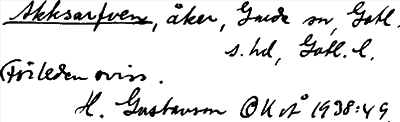 Akksarfven, åker, Garde sn, Gotl.
s. hd, Gotl. l.
Förleden oviss.
H. Gustavson OKvÅ 1938:49